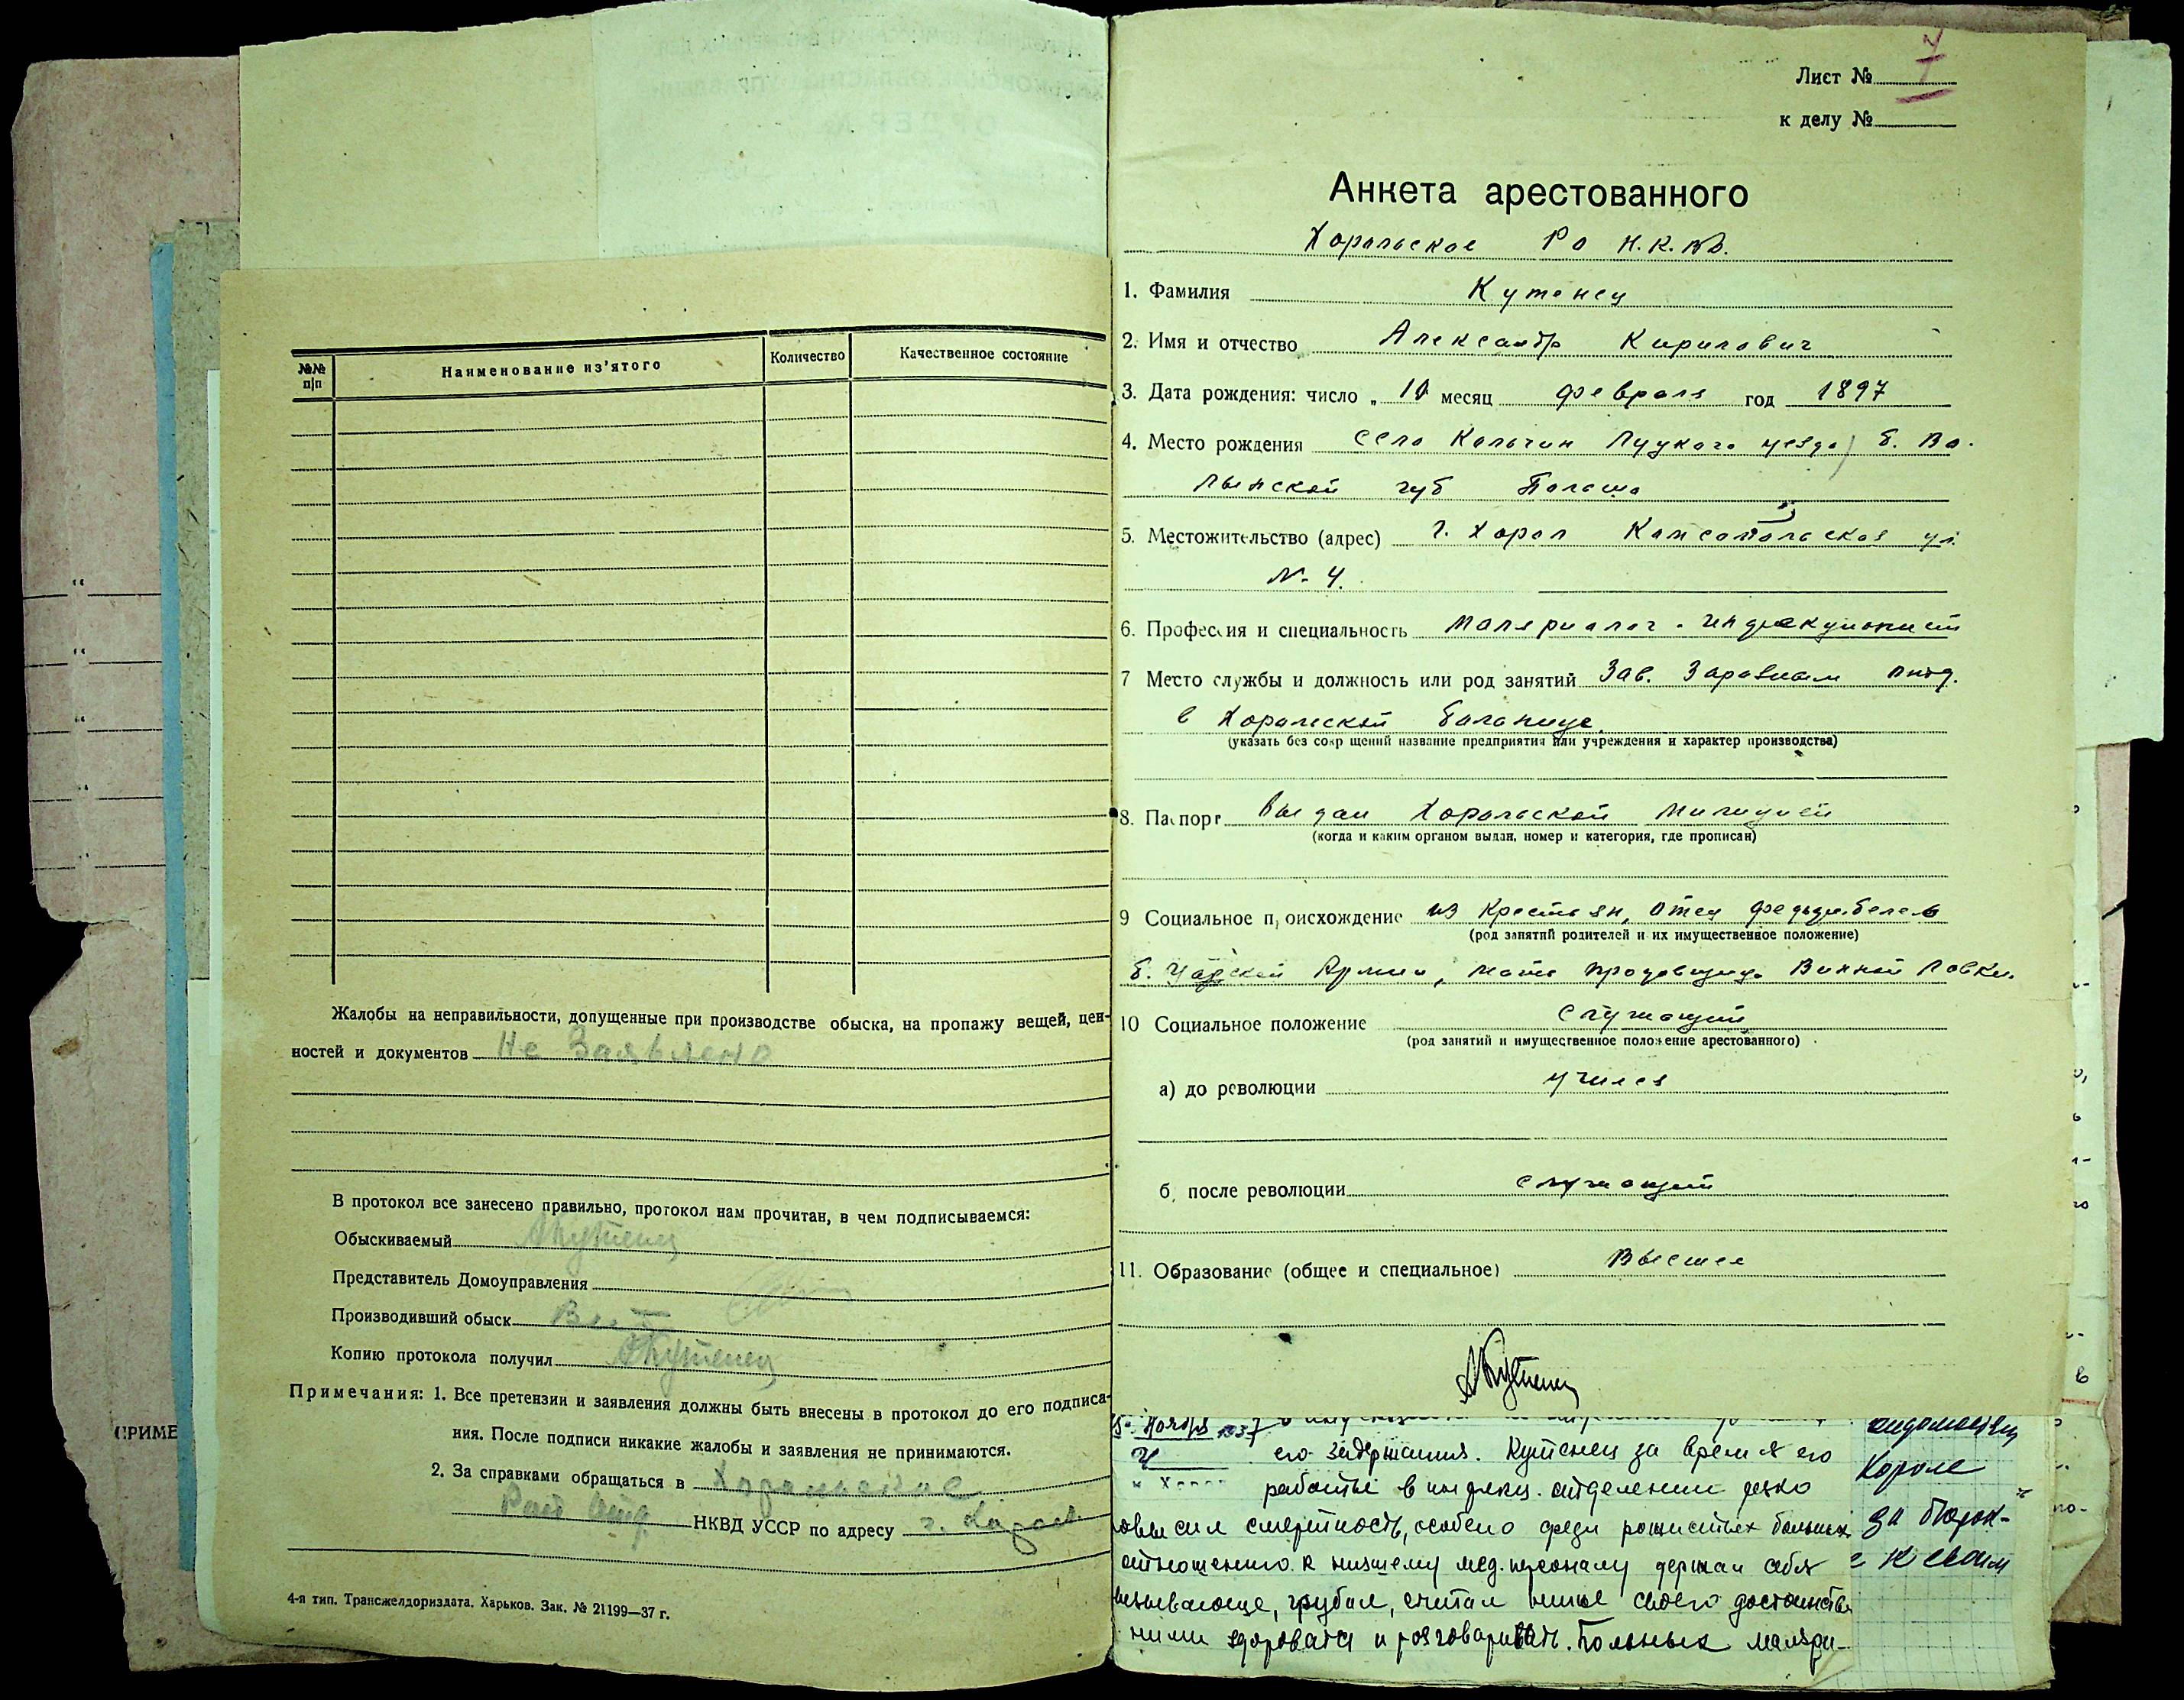 №№ п/п
Наименование из'ятого
Количество
Качественное состояние
Жалобы на неправильности, допущенные при производстве обыска, на пропажу вещей, цен-
ностей и документов Не Заявлено
В протокол все занесено правильно, протокол нам прочитан, в чем подписываемся:
Обыскиваемый АКутенец
Представитель Домоуправления
Производивший обыск
Копию протокола получил АКутенец
Примечания: 1. Все претензии и заявления должны быть внесены в протокол до его подписа-
ния. После подписи никакие жалобы и заявления не принимаются.
2. За справками обращаться в Хорольское
НКВД УССР по адресу г. Хорол
4-я тип. Трансжелдориздата. Харьков. Зак. № 21199—37 г.
ПРИМЕ
Лист № 7
к делу №
Анкета арестованного
Хорольское РО Н.К.В.Д.
1. Фамилия Кутенец
2. Имя и отчество Александр Кирилович
3. Дата рождения: число „ 10 месяц февраля год 1897
4. Место рождения село Кольчин Луцкого уезда б. Во-
лынской губ Польша
5. Местожительство (адрес) г. Хорол Комсомольская ул.
№ 4.
6. Профессия и специальность Маляриолог - инфекционист
7 Место службы и должность или род занятий Зав. Заразным отд.
в Хорольской больнице
(указать без сокращений название предприятия или учреждения и характер производства)
8. Паспорт выдан Хорольской милицией
(когда и каким органом выдан, номер и категория, где прописан)
9 Социальное происхождение из крестьян, отец фельдфебель
(род занятий родителей и их имущественное положение)
б. Царской Армии, мать продавщица Винной Лавки.
10 Социальное положение служащий
(род занятий и имущественное положение арестованного)
а) до революции учился
б, после революции служащий
11. Образование (общее и специальное) Высшее
АКутенец
Ноября 1937
его задержания. Кутенец за время его
работы в инфекц. отделении резко
повысил смертность, особено среди рожистых больных
отношению к низшему мед. персоналу держал себя
вызывающе, грубил, считал ниже своего достоинства
ними здороватся и розговаривать. Больных маляри-
Короле
за
к своим